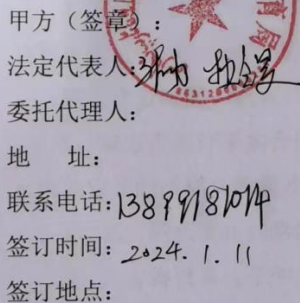 甲方（签章）：
法定代表人：
委托代理人：
地 址：
联系电话：13899181014
签订时间：2024.1.11
签订地点：